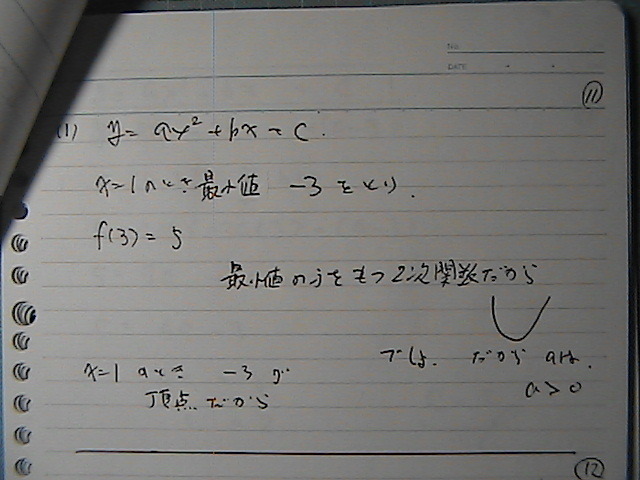 NO.
DATE
11
(1) y = ax² + bx + c.
x=1のとき最小値 -3をとり.
f(3) = 5
最小値のみをもつ2次関数だから
下に凸. だから aは.
x=1 のとき -3 が
a > 0
頂点だから
12